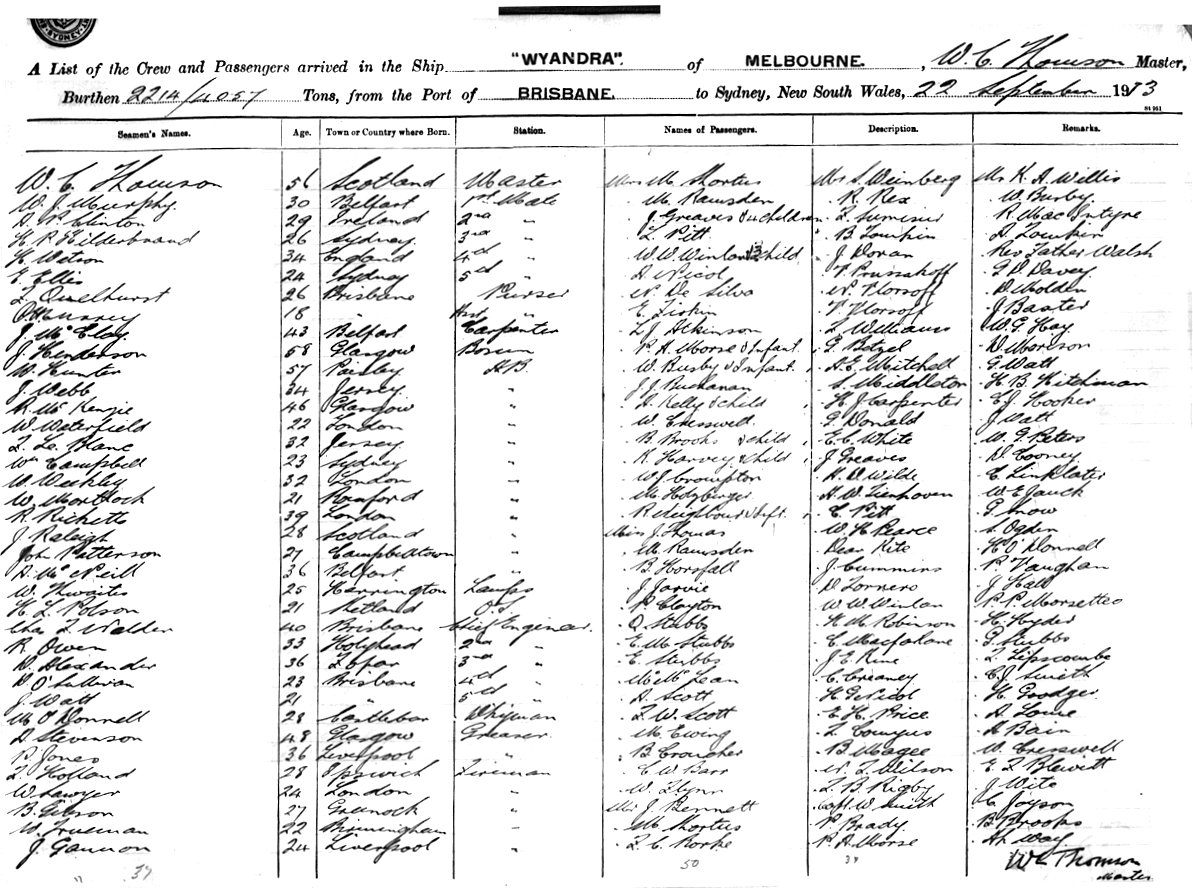 SYDNEY
A List of the Crew and Passengers arrived in the Ship "WYANDRA". of MELBOURNE. , W. C. Thomson Master,
Burthen 2214/4057 Tons, from the Port of BRISBANE. to Sydney, New South Wales, 22 September 1913
St 961
Seamen's Names. Age. Town or Country where Born. Station. Names of Passengers. Description. Remarks.
W. C. Thomson 56 Scotland Master Mrs M. Shortus Mr S. Weinberg Mr K. A. Willis
W. J. Murphy 30 Belfast 1st Mate " M. Ramsden " R. Rex " W. Busby
D. P. Clinton 29 Ireland 2nd " " J Greaves & children " R. MacIntyre
H. P. Hilderbrand 26 Sydney 3rd " " L Pitt " B. Lowkin " A Lowkin
H. Wetson 34 England 4th " " W. W. Winlow & 3 child " J Doran Rev Father Walsh
E. Ellis 24 Sydney 5th " A Nicol " V Prussakoff " G D Davey
L. Quelhurst 26 Brisbane Purser " N. De Silva " N Horsoff " D Molden
O. Murray 18 " Asst " " E. Ziskin " V Horsoff " J Baxter
J. McElay 43 Belfast Carpenter " L J Atkinson " L Williams " W. G. Hay
J. Henderson 58 Glasgow Bosun " P. A. Morse & Infant " G. Betzel " D Morison
W. Hunter 57 Paisley A.B. " W. Busby & Infant " A. E. Mitchell " G Watt
J. Webb 34 Jersey " " J. J. Buchanan " S. Middleton " H B. Hitchman
R. McKenzie 46 Glasgow " " D. Kelly & child " H J Carpenter " C J. Hooker
W. Waterfield 22 London " " W. Cresswell " G Donald " J Watt
L. Le Blanc 32 Jersey " " B. Brooks & child " E. C. White " W. G. Peters
Wm Campbell 23 Sydney " " K. Harvey & child " J Greaves " D Cooney
W. Weekley 32 London " " W J Crompton " A. D. Wilde " C. Linklater
W. Mortlock 21 Romford " " M. Holzberger " A. W. Lienhoven " W E Jauck
R. Ricketts 39 London " " R Neighbour & Inft. " C. Pitt " P. Snow
J. Raleigh 28 Scotland " Miss J. Thomas " W. H. Pearce " S. Ogden
John Patterson 27 Campbelltown " " M. Ramsden " Dear Kite " H O'Donnell
A. McNeill 36 Belfast " " B. Horsfall " J. Cummins " R. Vaughan
W. Thwaites 25 Harrington Lamps " J. Jarvie " D Torners " J Hall
H. L. Polson 21 Shetland O.S. " P. Clayton " W. W. Winlow " P. P. Morsetteo
Chas F. Walden 40 Brisbane Chief Engineer. " O. Stubbs " H. M. Robinson " H. Hyder
R. Owen 33 Holyhead 2nd " " E. M. Stubbs " C. Macfarlane " P. Stubbs
D. Alexander 36 3rd " " E. Stubbs " J. E. Kine " L. Lipscombe
D O'Sullivan 23 Brisbane 4th " " M. McLean " C. Creaney " C. J. Smith
J. Watt 21 " 5th " " A. Scott " H. G. Nicol " H. Goodger
M. O'Donnell 28 Castlebar " L. W. Scott " E. H. Price " A. Lowe
D. Stevenson 48 Glasgow Greaser " M. Ewing " L. Comyns " A Bain
P. Jones 36 Liverpool " " B. Croucher " B. Magee " W. Cresswell
L. Holland 28 Ipswich Fireman " C. W. Barr " N. L. Wilson " E. L. Blewitt
W. Sawyer 24 London " " W. Flynn " L. B. Rigby " J Wite
B. Gibson 27 Greenock " Mr J. Bennett Capt W Smith " C. Joyson
W. Trueman 22 Birmingham " " M. Shortus " P. Brady " B Brooks
J. Gannon 24 Liverpool " " L. C. Rorke " P. A. Morse " Way
37 50 37 W C Thomson
Master